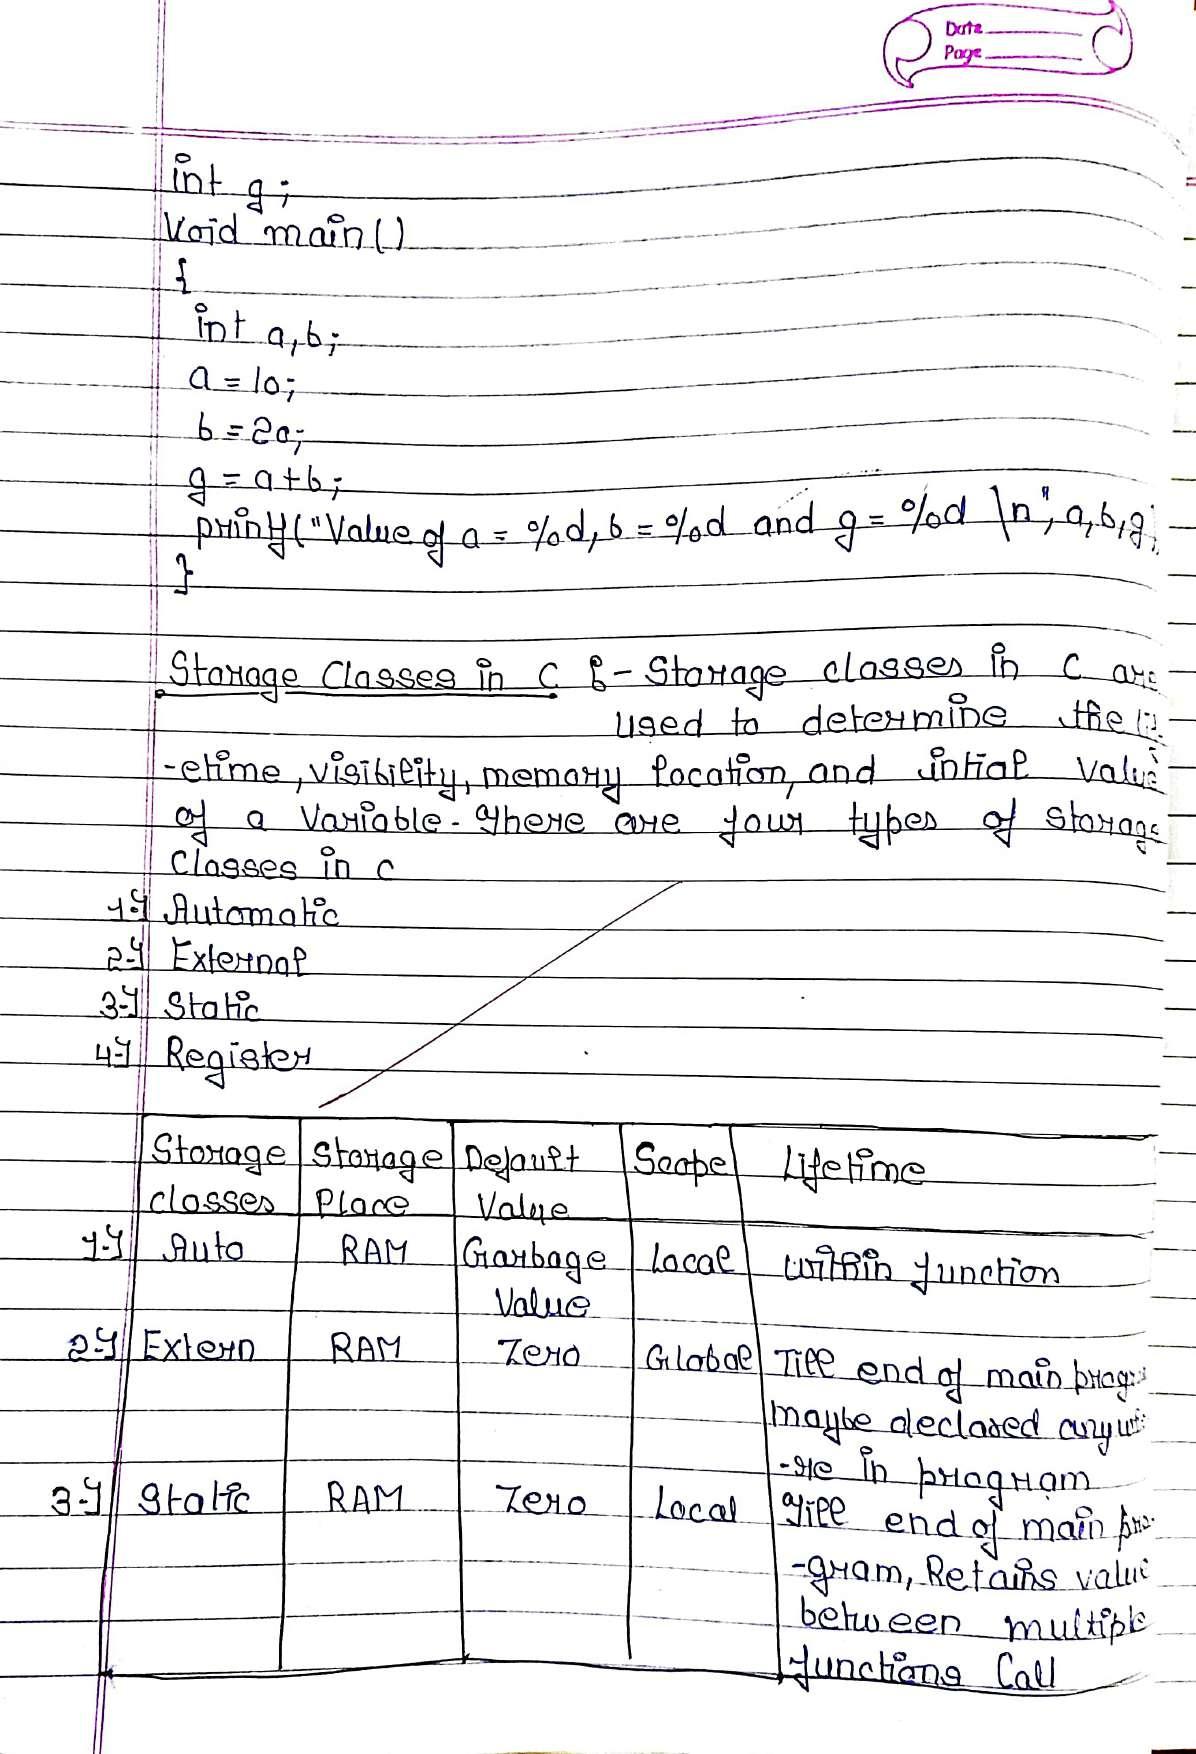 Date
Page
int g;
Void main()
{
int a,b;
a = 10;
b = 20;
g = a+b;
printf("Value of a = %d, b = %d and g = %d \n", a,b,g);
}
Storage Classes in C :- Storage classes in C are
used to determine the
-etime, visibility, memory location, and intial value
of a Variable. There are four types of storage
Classes in c
1-) Automatic
2-) External
3-) Static
4-) Register
Storage Storage Default Scope Lifetime
classes Place Value
1-) Auto RAM Garbage Local within function
Value
2-) Extern RAM Zero Global Till end of main
maybe declared
-re in program
3-) Static RAM Zero Local Till end of main pro-
-gram, Retains value
between multiple
functions Call